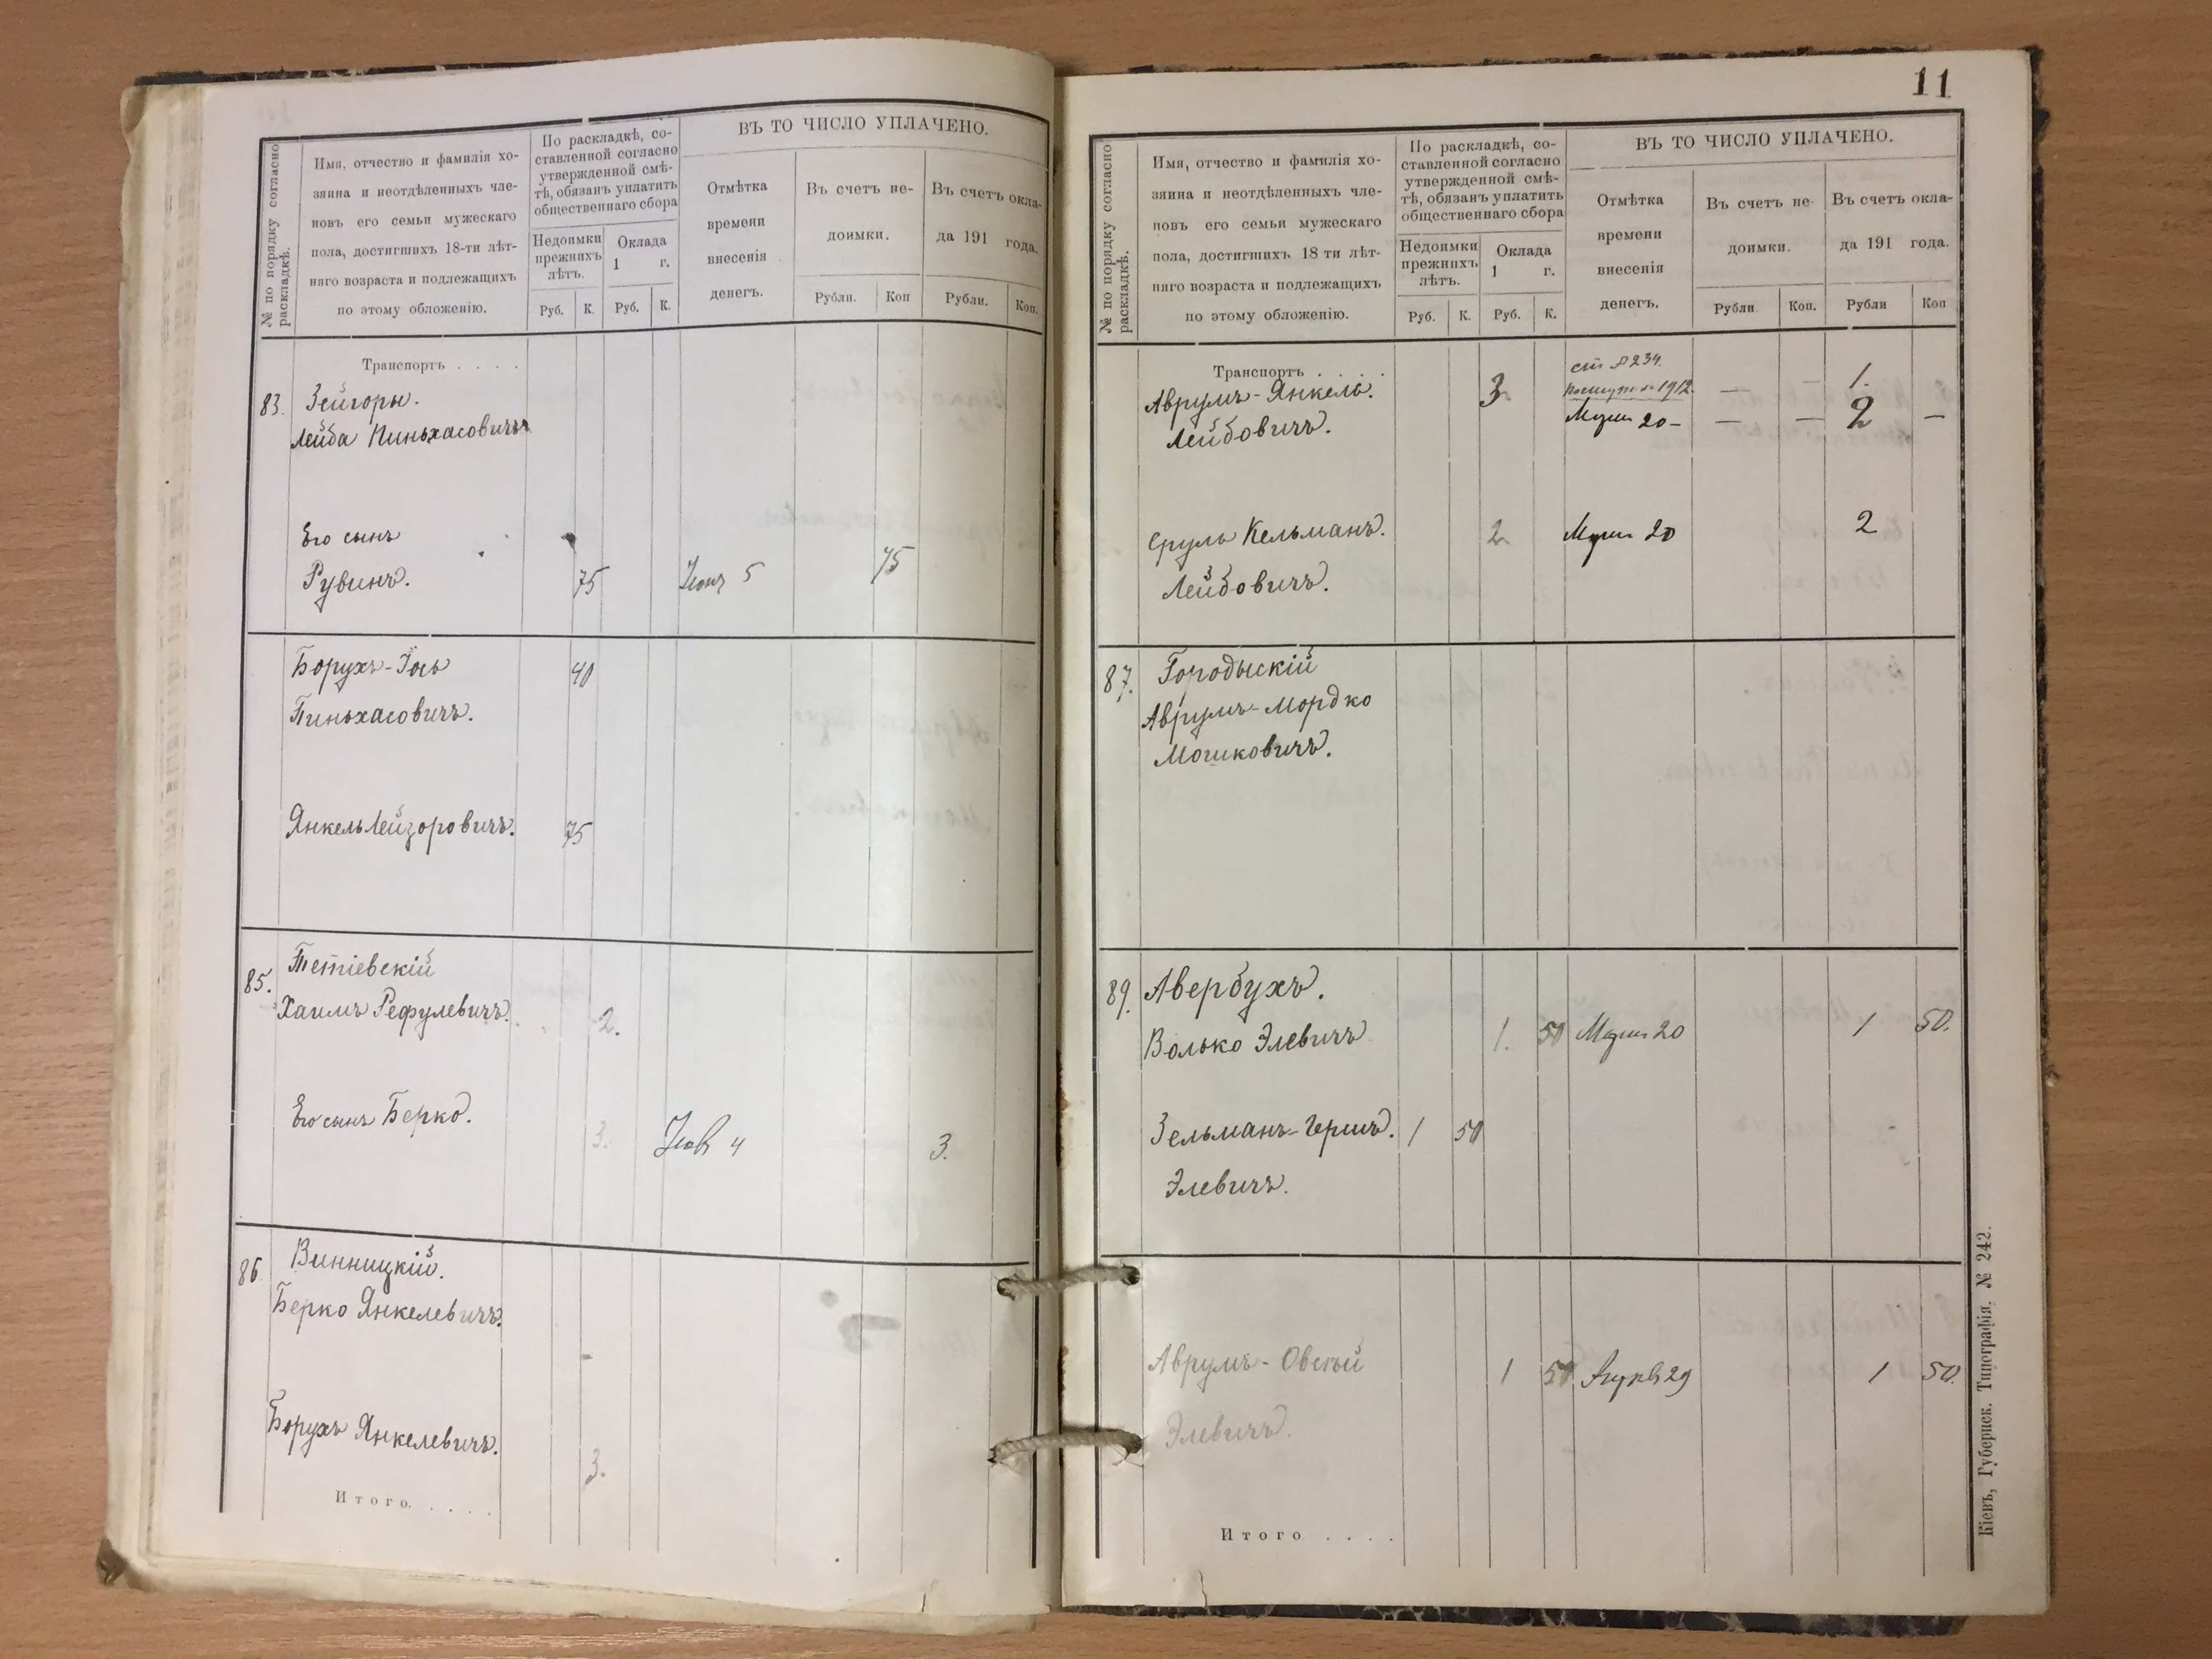 № по порядку согласно
раскладкѣ.
Имя, отчество и фамилія хо-
зяина и неотдѣленныхъ чле-
новъ его семьи мужескаго
пола, достигшихъ 18-ти лѣт-
няго возраста и подлежащихъ
по этому обложенію.
По раскладкѣ, со-
ставленной согласно
утвержденной смѣ-
тѣ, обязанъ уплатить
общественнаго сбора
Недоимки
прежнихъ
лѣтъ.
Оклада
1 г.
Руб. К. Руб. К.
ВЪ ТО ЧИСЛО УПЛАЧЕНО.
Отмѣтка
времени
внесенія
денегъ.
Въ счетъ не-
доимки.
Въ счетъ окла-
да 191 года.
Рубли. Коп Рубли. Коп.
Транспортъ . . . .
83. Зейгоры.
Лейба Пиньхасовичъ
Его сынъ
Рувинъ. 75 5 75
Борухъ-Іось 40
Пиньхасовичъ.
Янкель Лейзоровичъ. 75
85. Тетіевскій
Хаимъ Рефулевичъ. 2.
Его сынъ Берко. 3. 4 3.
86. Винницкій.
Берко Янкелевичъ.
Борухъ Янкелевичъ. 3.
Итого. . . . .
11
№ по порядку согласно
раскладкѣ.
Имя, отчество и фамилія хо-
зяина и неотдѣленныхъ чле-
новъ его семьи мужескаго
пола, достигшихъ 18 ти лѣт-
няго возраста и подлежащихъ
по этому обложенію.
По раскладкѣ, со-
ставленной согласно
утвержденной смѣ-
тѣ, обязанъ уплатить
общественнаго сбора
Недоимки
прежнихъ
лѣтъ.
Оклада
1 г.
Руб. К. Руб. К.
ВЪ ТО ЧИСЛО УПЛАЧЕНО.
Отмѣтка
времени
внесенія
денегъ.
Въ счетъ не
доимки.
Въ счетъ окла-
да 191 года.
Рубли Коп. Рубли Коп
Транспортъ . . . . 234.
Аврумъ-Янкель. 3. 1912. — 1.
Лейбовичъ. 20 – — — 2 —
Сруль Кельманъ. 2. 20 2
Лейбовичъ.
87. Городыскій
Аврумъ-Мордко
Мошковичъ.
89. Авербухъ.
Волько Элевичъ 1. 50 20 1 50.
Зельманъ-Гершъ. 1 50
Элевичъ.
Аврумъ-Овсѣй 1 50 29 1 50.
Элевичъ.
Итого . . . .
Кіевъ, Губернск. Типографія. № 242.